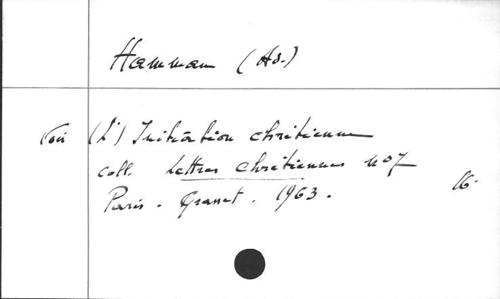 Hamman (Ad.)
Voir (L') Initiation chrétienne
coll. Lettres chrétiennes no 7
Paris - Grasset. 1963.